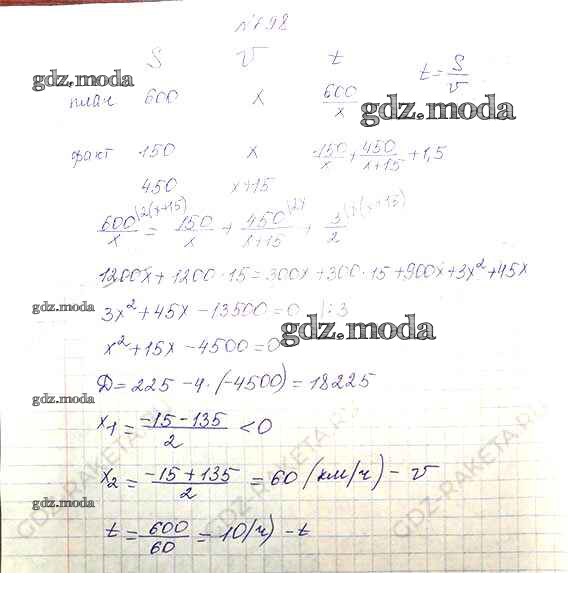 №798
S v t
t = S/v
gdz.moda
план 600 x 600/x
gdz.moda
факт 150 x 150/x + 450/(x+15) + 1,5
450 x+15
600/x |2(x+15) = 150/x + 450/(x+15) |2x + 3/2 |x(x+15)
1200x + 1200·15 = 300x + 300·15 + 900x + 3x² + 45x
gdz.moda
3x² + 45x − 13500 = 0 |:3
gdz.moda
x² + 15x − 4500 = 0
Д = 225 − 4·(−4500) = 18225
gdz.moda
x₁ = (−15 − 135)/2 < 0
x₂ = (−15 + 135)/2 = 60 (км/ч) − v
gdz.moda
t = 600/60 = 10(ч) − t
GDZ-RAKETA.RU
GDZ-RAKETA.RU